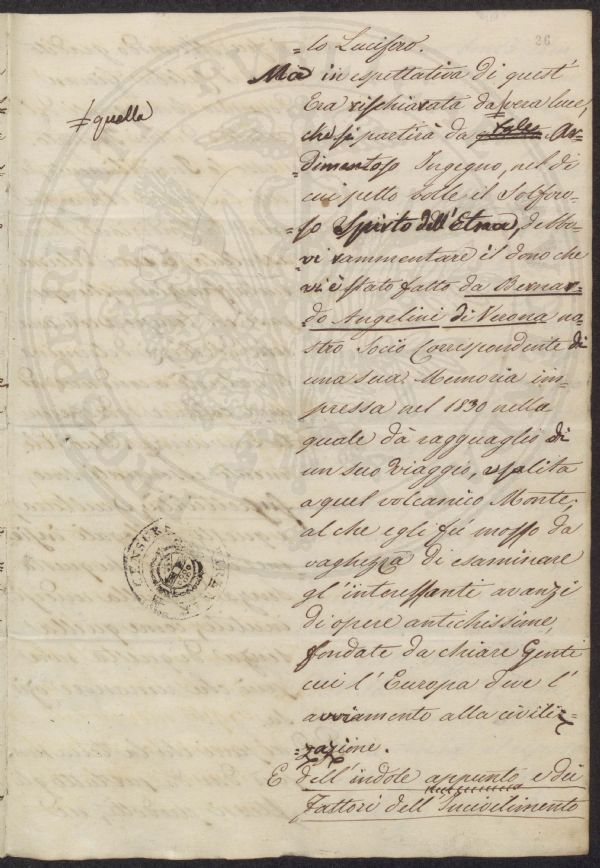 26
=lo Lucifero.
Ma in espettativa di quest'
Era rischiarata da ‡ vera luce,
‡ quella
che si partirà da quel Ar=
=dimentoso Ingegno, nel di
cui petto bolle il Solforo=
=so Spirto dell'Etna, debbo
vi rammentare il dono che
vi è stato fatto da Bernar=
=do Angelini di Verona no=
stro Socio Corrispondente di
una sua Memoria im=
pressa nel 1830 nella
quale dà ragguaglio di
un suo viaggio, e salita
a quel volcanico Monte,
al che egli fù mosso da
vaghezza di esaminare
gl'interessanti avanzi
di opere antichissime,
fondate da chiare Genti
cui l'Europa deve l'
avviamento alla civili=
=zazione.
E dell'indole appunto e dei
Fattori dell'Incivilimento
CENSURA